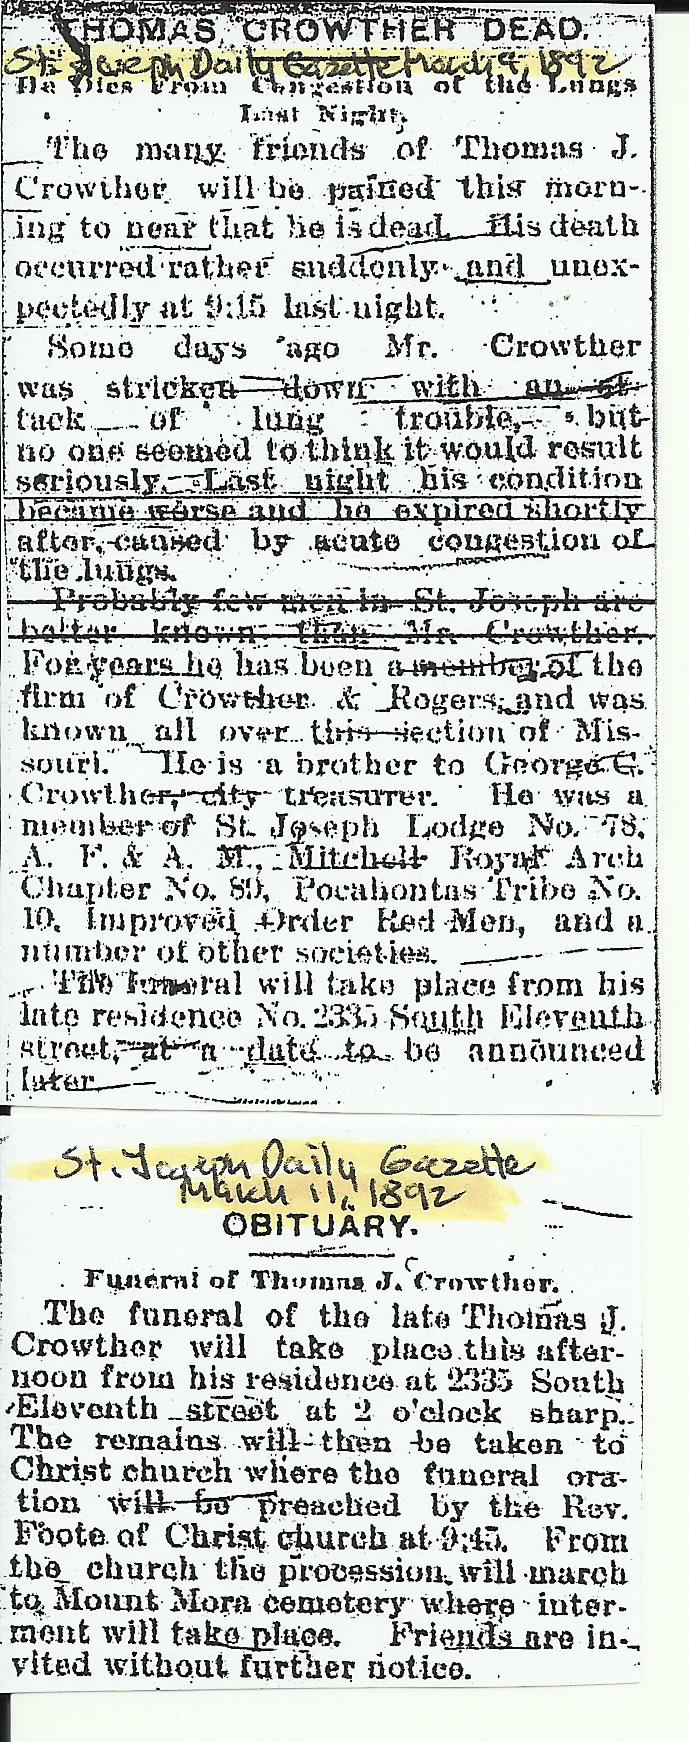 THOMAS CROWTHER DEAD.
St. Joseph Daily Gazette March 9, 1892
He Dies From Congestion of the Lungs
Last Night.
The many friends of Thomas J.
Crowther will be pained this morn-
ing to hear that he is dead. His death
occurred rather suddenly and unex-
pectedly at 9:15 last night.
Some days ago Mr. Crowther
was stricken down with an at-
tack of lung trouble, but
no one seemed to think it would result
seriously. Last night his condition
became worse and he expired shortly
after, caused by acute congestion of
the lungs.
Probably few men in St. Joseph are
better known than Mr. Crowther.
For years he has been a member of the
firm of Crowther & Rogers, and was
known all over this section of Mis-
souri. He is a brother to George C.
Crowther, city treasurer. He was a
member of St. Joseph Lodge No. 78,
A. F. & A. M., Mitchell Royal Arch
Chapter No. 89, Pocahontas Tribe No.
19, Improved Order Red Men, and a
number of other societies.
The funeral will take place from his
late residence No. 2335 South Eleventh
street, at a date to be announced
later
St. Joseph Daily Gazette
March 11, 1892
OBITUARY.
Funeral of Thomas J. Crowther.
The funeral of the late Thomas J.
Crowther will take place this after-
noon from his residence at 2335 South
Eleventh street at 2 o'clock sharp.
The remains will then be taken to
Christ church where the funeral ora-
tion will be preached by the Rev.
Foote of Christ church at 9:45. From
the church the procession will march
to Mount Mora cemetery where inter-
ment will take place. Friends are in-
vited without further notice.